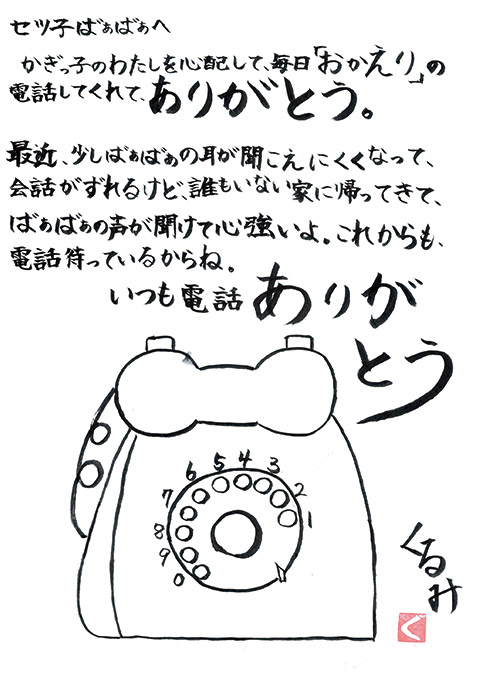 セツ子ばぁばぁへ
かぎっ子のわたしを心配して、毎日「おかえり」の
電話してくれて、ありがとう。
最近、少しばぁばぁの耳が聞こえにくくなって、
会話がずれるけど、誰もいない家に帰ってきて、
ばぁばぁの声が聞けて心強いよ。これからも、
電話待っているからね。
いつも電話ありが
とう
6 5 4 3 2 1
7
8
9
0
くるみ
ぐ